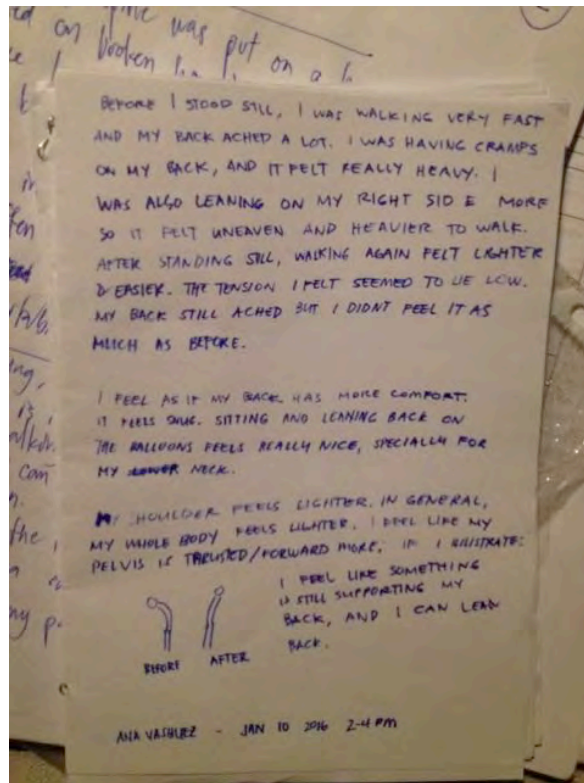 was put on a
on broken
BEFORE I STOOD STILL, I WAS WALKING VERY FAST
AND MY BACK ACHED A LOT. I WAS HAVING CRAMPS
ON MY BACK, AND IT FELT REALLY HEAVY. I
WAS ALSO LEANING ON MY RIGHT SIDE MORE
SO IT FELT UNEAVEN AND HEAVIER TO WALK.
AFTER STANDING STILL, WALKING AGAIN FELT LIGHTER
& EASIER. THE TENSION I FELT SEEMED TO LIE LOW.
MY BACK STILL ACHED BUT I DIDNT FEEL IT AS
MUCH AS BEFORE.
I FEEL AS IF MY BACK HAS MORE COMFORT.
IT FEELS SNUG. SITTING AND LEANING BACK ON
THE BALLOONS FEELS REALLY NICE, SPECIALLY FOR
MY LOWER NECK.
MY SHOULDER FEELS LIGHTER. IN GENERAL,
MY WHOLE BODY FEELS LIGHTER. I FEEL LIKE MY
PELVIS IS THRUSTED/FORWARD MORE. IF I ILLUSTRATE:
I FEEL LIKE SOMETHING
IS STILL SUPPORTING MY
BACK, AND I CAN LEAN
BACK.
BEFORE AFTER
ANA - JAN 10 2016 2-4 PM
can
the
my